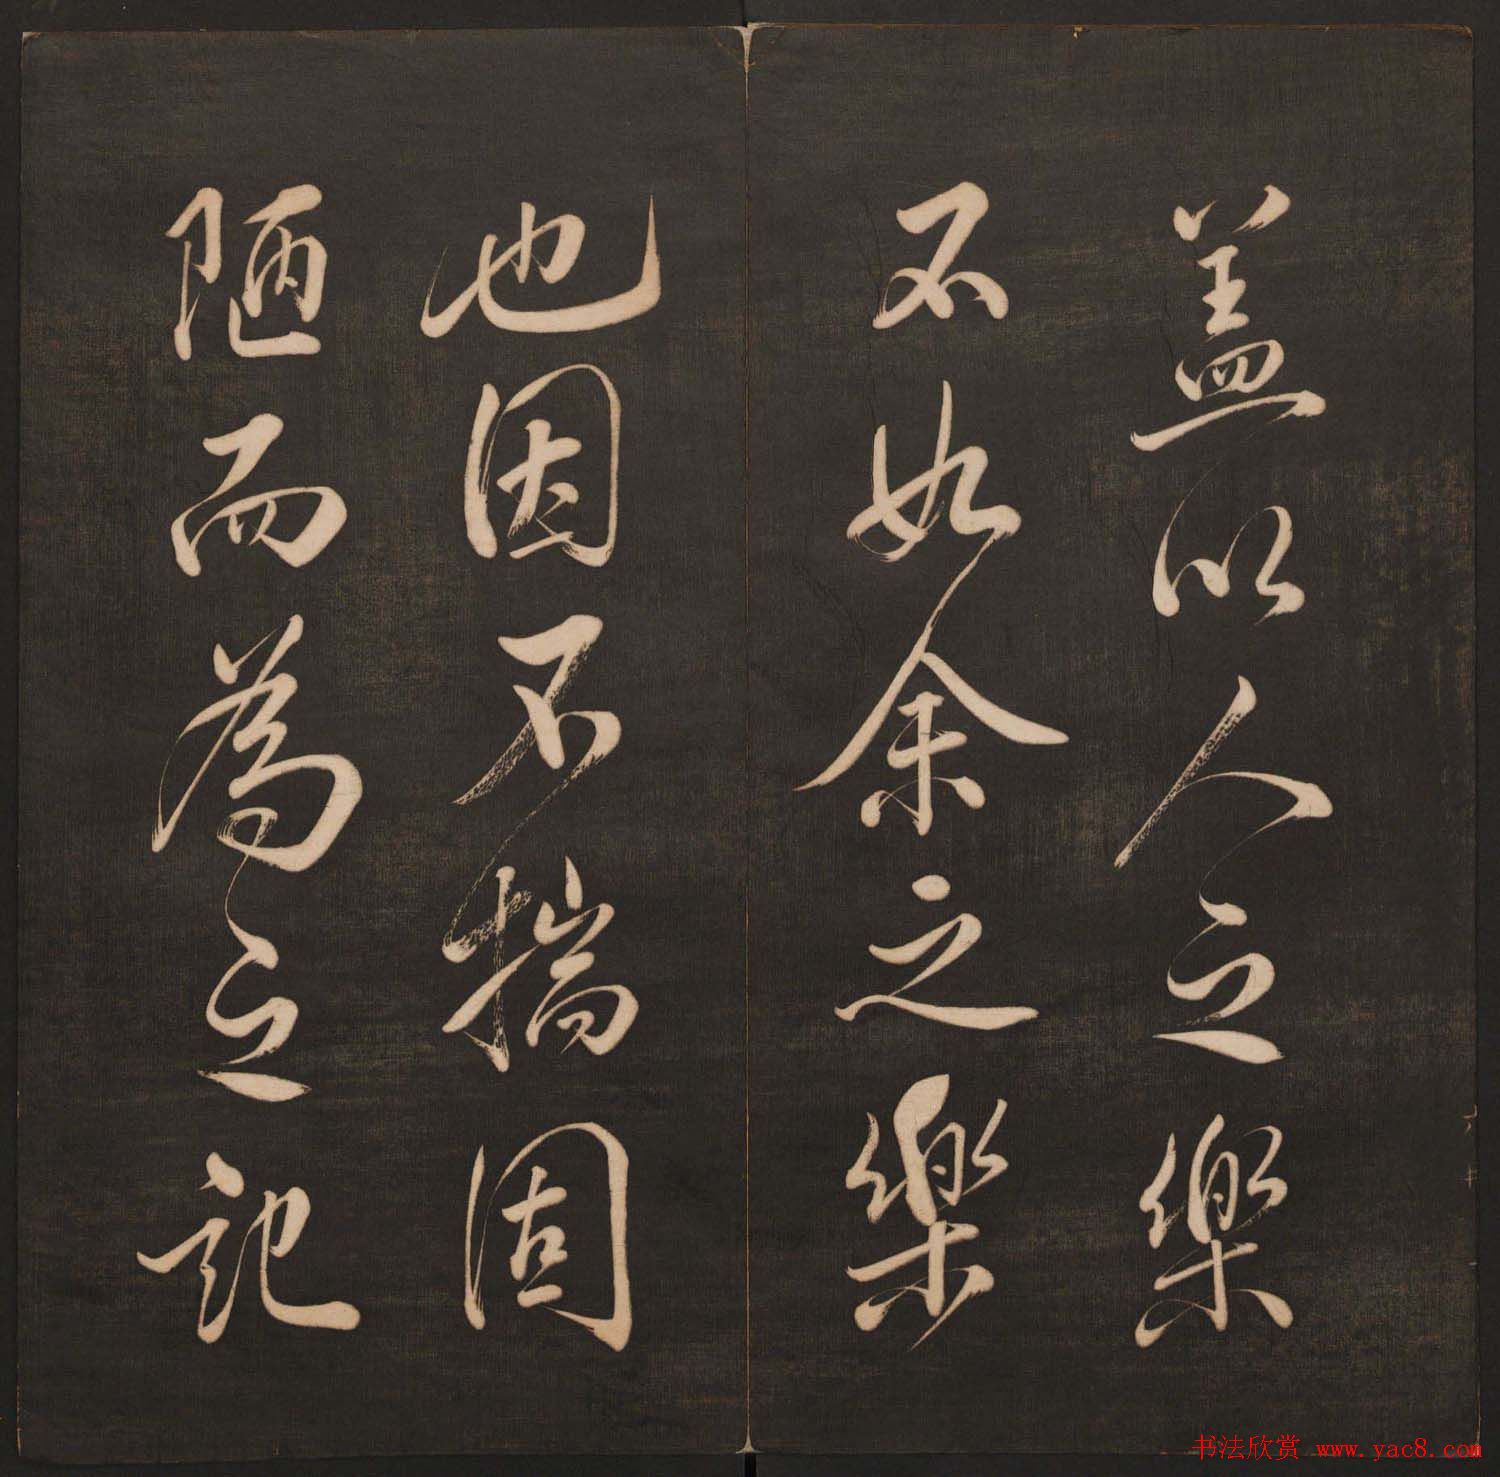 盖以人之樂
不如余之樂
也因不揣固
陋而為之記
书法欣赏 www.yac8.com